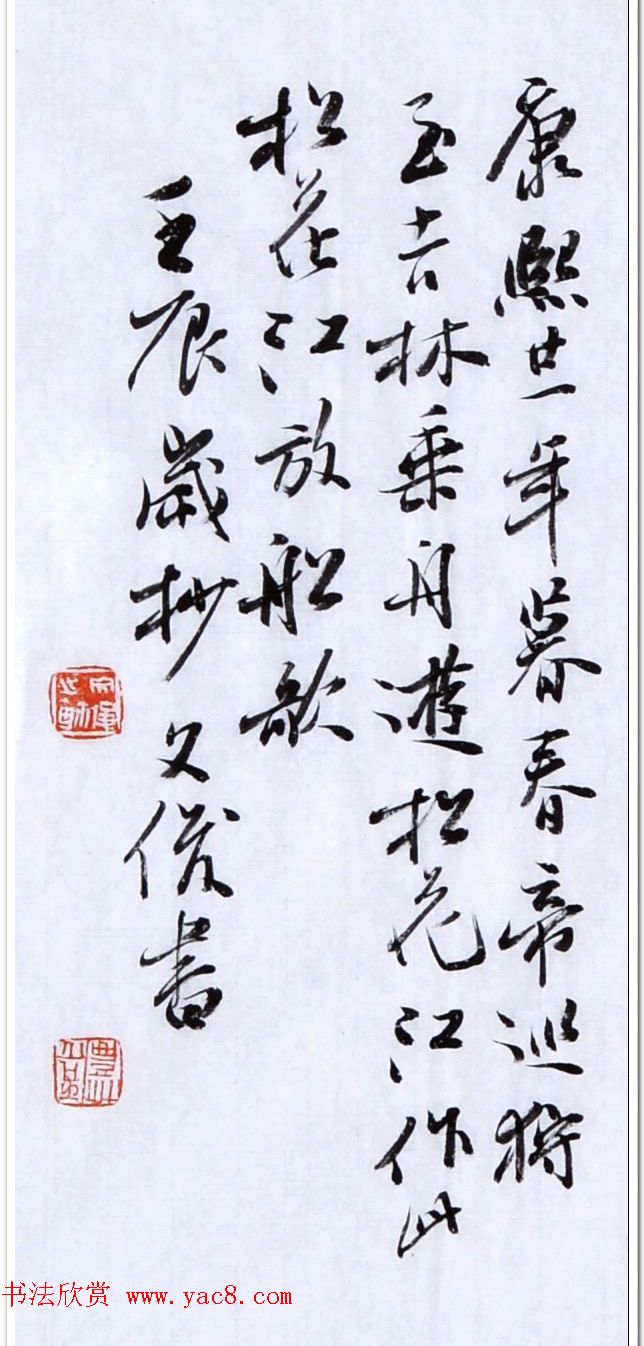 康熙廿一年暮春帝巡狩
至吉林乘舟遊松花江作此
松花江放船歌
壬辰歲杪文俊書
书法欣赏 www.yac8.com